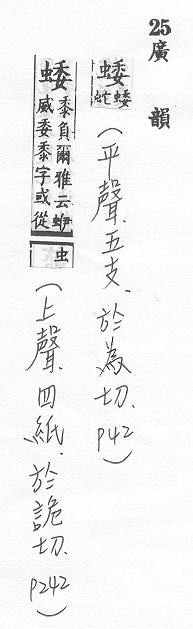 25廣韻
蜲蜲蛇(平聲.五支.於為切.P42)
蜲黍負爾雅云蛜威委黍字或從虫(上聲.四紙.於詭切.P242)